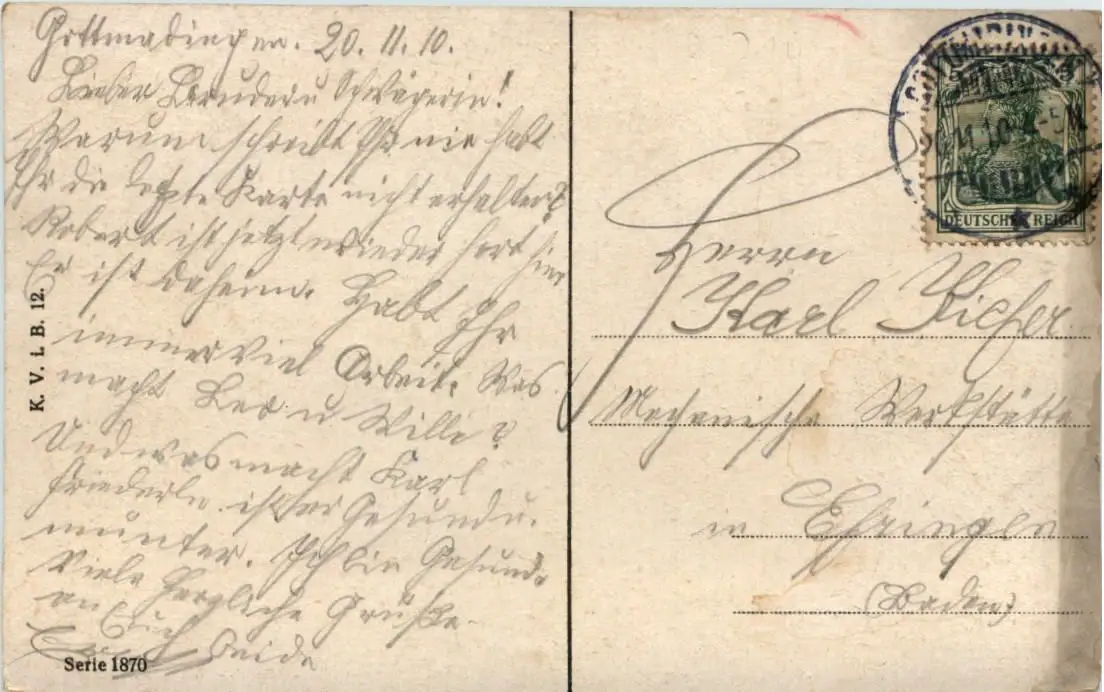 Gottmadingen. 20. 11. 10.
Lieber Bruder u Schwägerin!
Warum schreibt Ihr nie habt
Ihr die letzte Karte nicht erhalten?
Robert ist jetzt wieder fort hier
Er ist daheim. Habt Ihr
immer viel Arbeit. Was
macht Leo u Willi?
Und was macht Karl
Friederle ist er Gesund u.
munter. Ich bin Gesund
Viele herzliche Grüße
an Euch beide
K. V. i. B. 12.
Serie 1870
DEUTSCHES REICH
Herrn
Karl Kiefer
Mechanische Werkstätte
in Efringen
(Baden)